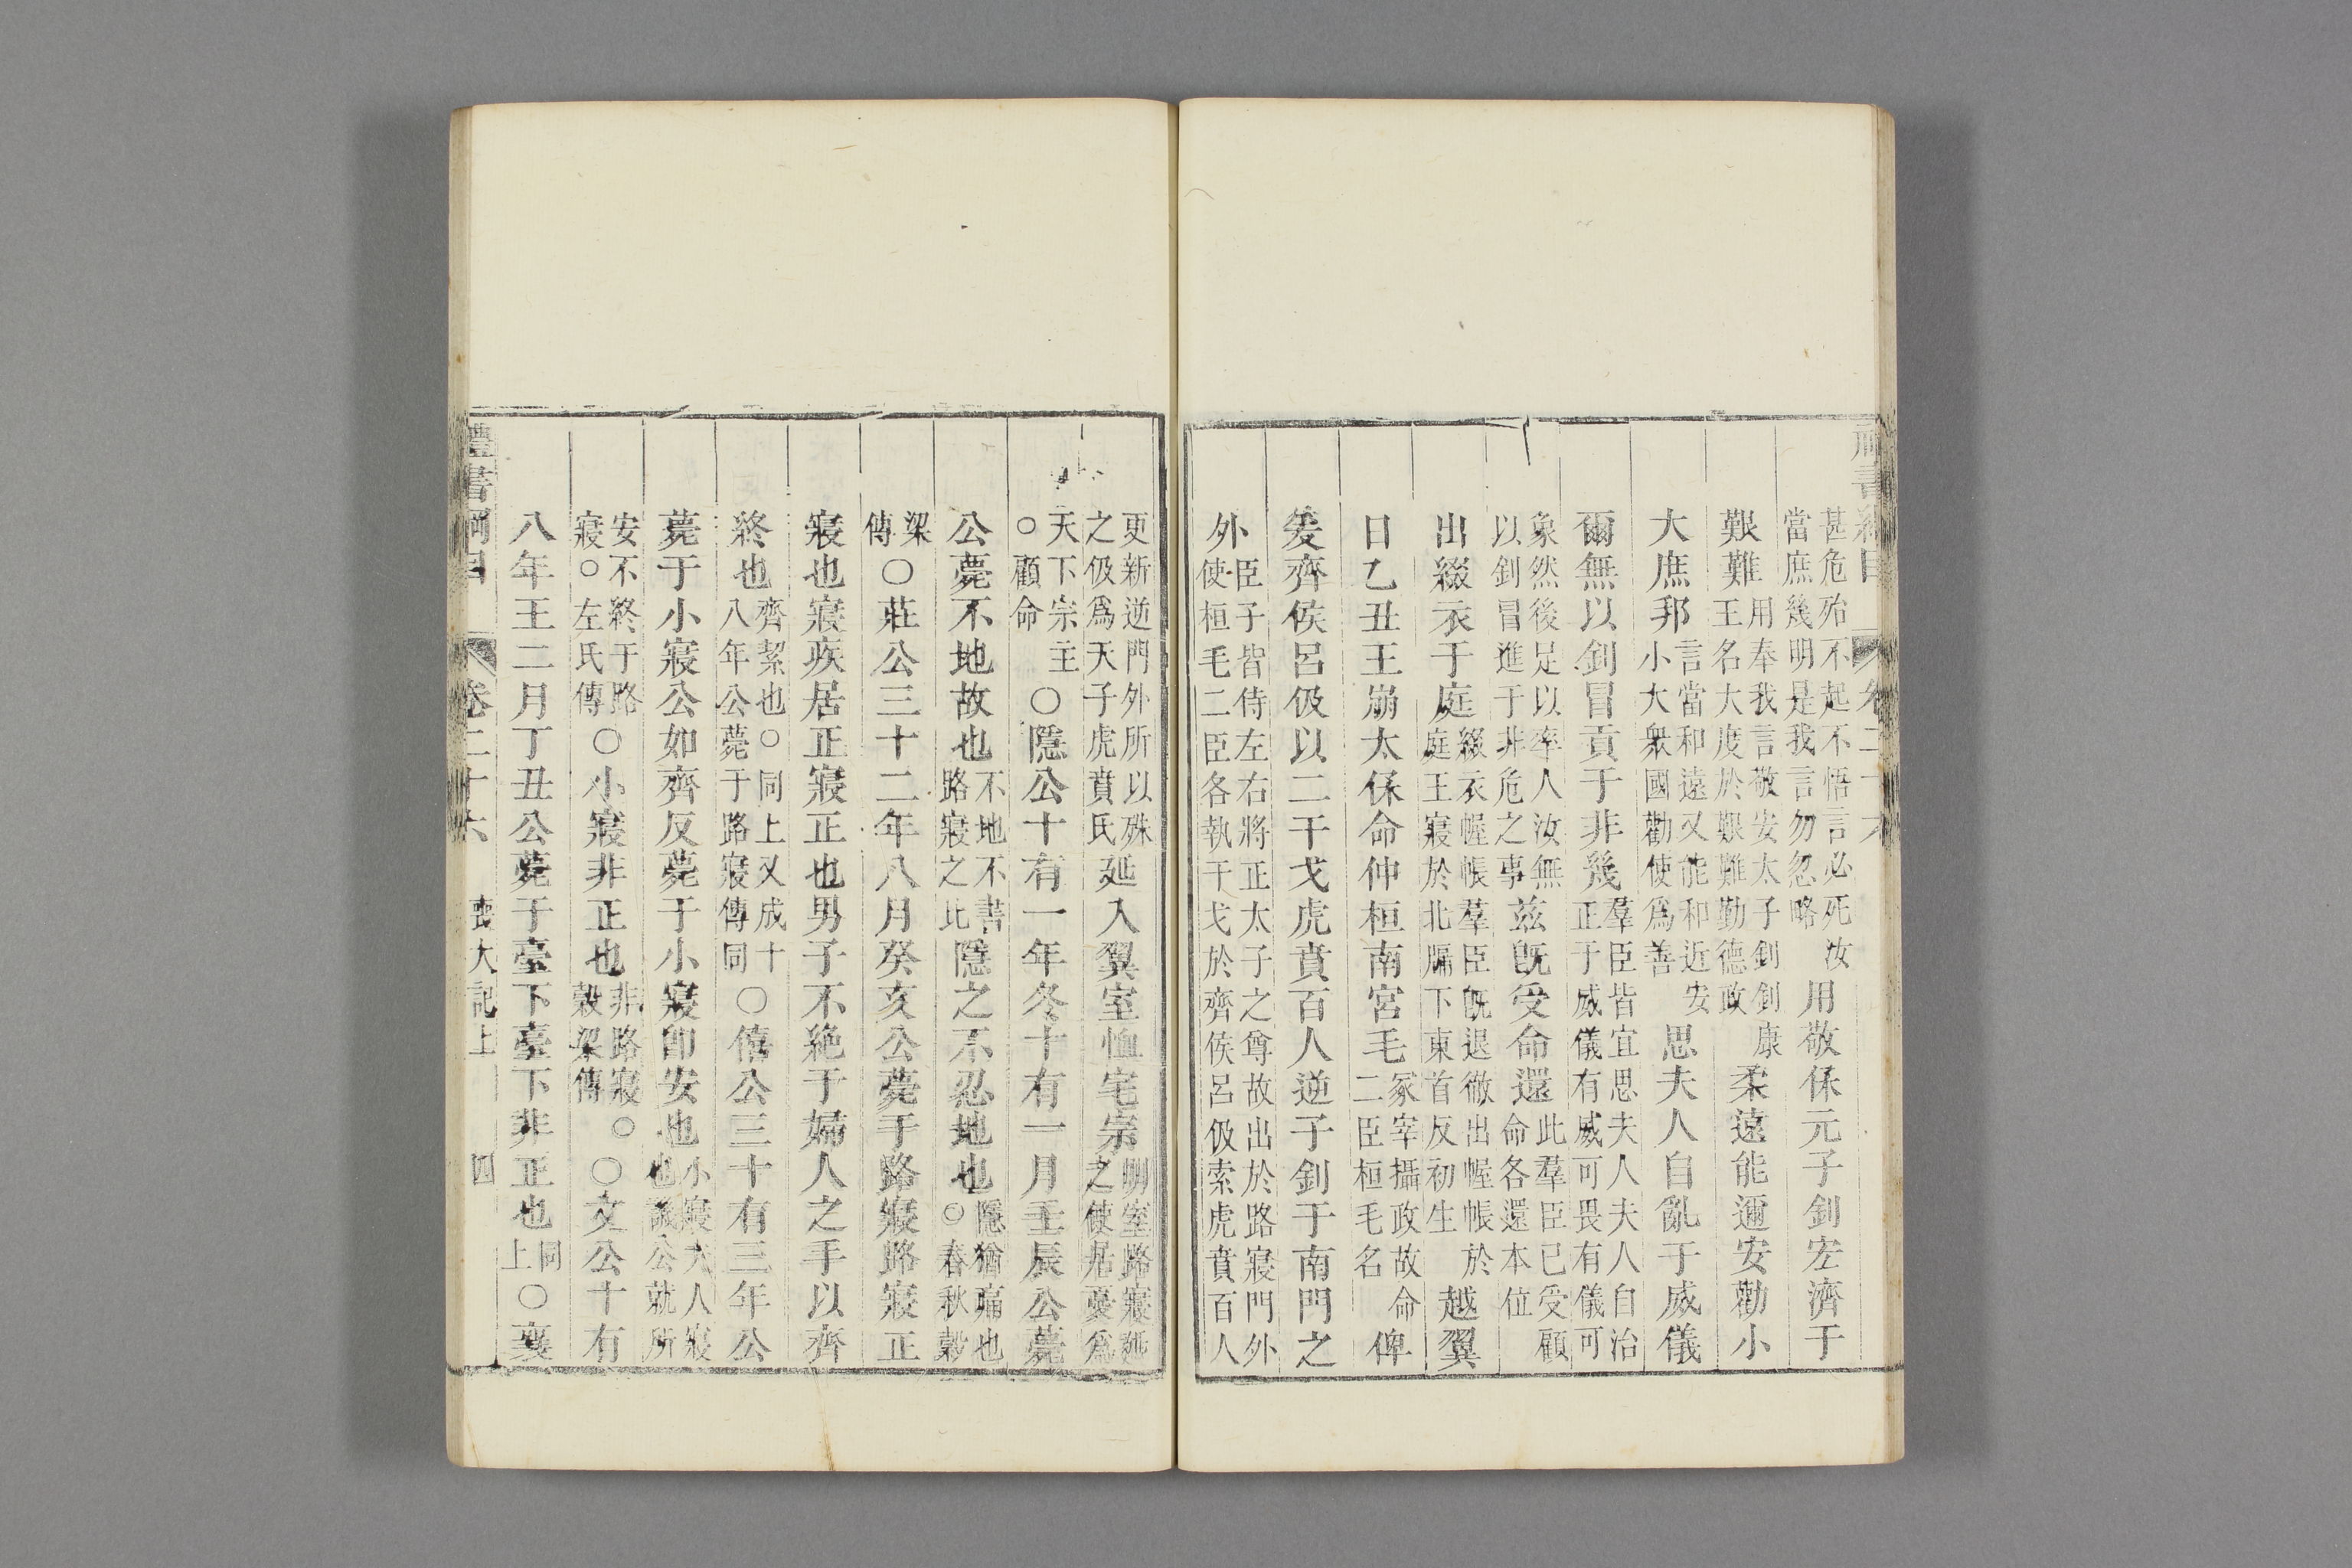 禮書綱目 卷二十六
甚危殆不起不悟言必死汝
當庶幾明是我言勿忽略
用敬保元子釗宏濟于
艱難
用奉我言敬安太子釗釗康
王名大度於艱難勤德政
柔遠能邇安勸小
大庶邦
言當和遠又能和近安
小大衆國勸使爲善
思夫人自亂于威儀
爾無以釗冒貢于非幾
羣臣皆宜思夫人夫人自治
正于威儀有威可畏有儀可
象然後足以率人汝無
以釗冒進于非危之事
茲旣受命還
此羣臣已受顧
命各還本位
出綴衣于庭
綴衣幄帳羣臣旣退徹出幄帳於
庭王寢於北牖下東首反初生
越翼
日乙丑王崩太保命仲桓南宮毛
冢宰攝政故命
二臣桓毛名
俾
爰齊侯呂伋以二干戈虎賁百人逆子釗于南門之
外
臣子皆侍左右將正太子之尊故出於路寢門外
使桓毛二臣各執干戈於齊侯呂伋索虎賁百人
更新逆門外所以殊
之伋爲天子虎賁氏
延入翼室恤宅宗
明室路寢延
之使居憂爲
天下宗主
○顧命
○隱公十有一年冬十有一月壬辰公薨
公薨不地故也
不地不書
路寢之比
隱之不忍地也
隱猶痛也
○春秋穀
梁
傳
○莊公三十二年八月癸亥公薨于路寢路寢正
寢也寢疾居正寢正也男子不絶于婦人之手以齊
終也
齊絜也○同上又成十
八年公薨于路寢傳同
○僖公三十有三年公
薨于小寢公如齊反薨于小寢卽安也
小寢夫人寢
也譏公就所
安不終于路
寢○左氏傳
○小寢非正也
非路寢○
穀梁傳
○文公十有
八年王二月丁丑公薨于臺下臺下非正也
同
上
○襄
禮書綱目 卷二十六 喪大記上 四